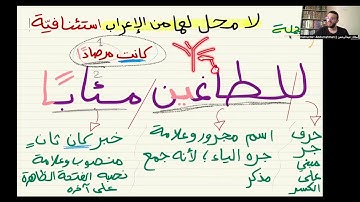 لا محل لها من الإعراب استئنافية
جملة
كانت مرصادًا
للطاغين مئابًا
حرف
جر
مبني
على
الكسر
اسم مجرور وعلامة
جره الياء؛ لأنه جمع
مذكر
خبر كان ثانٍ
منصوب وعلامة
نصبه الفتحة الظاهرة
على آخره